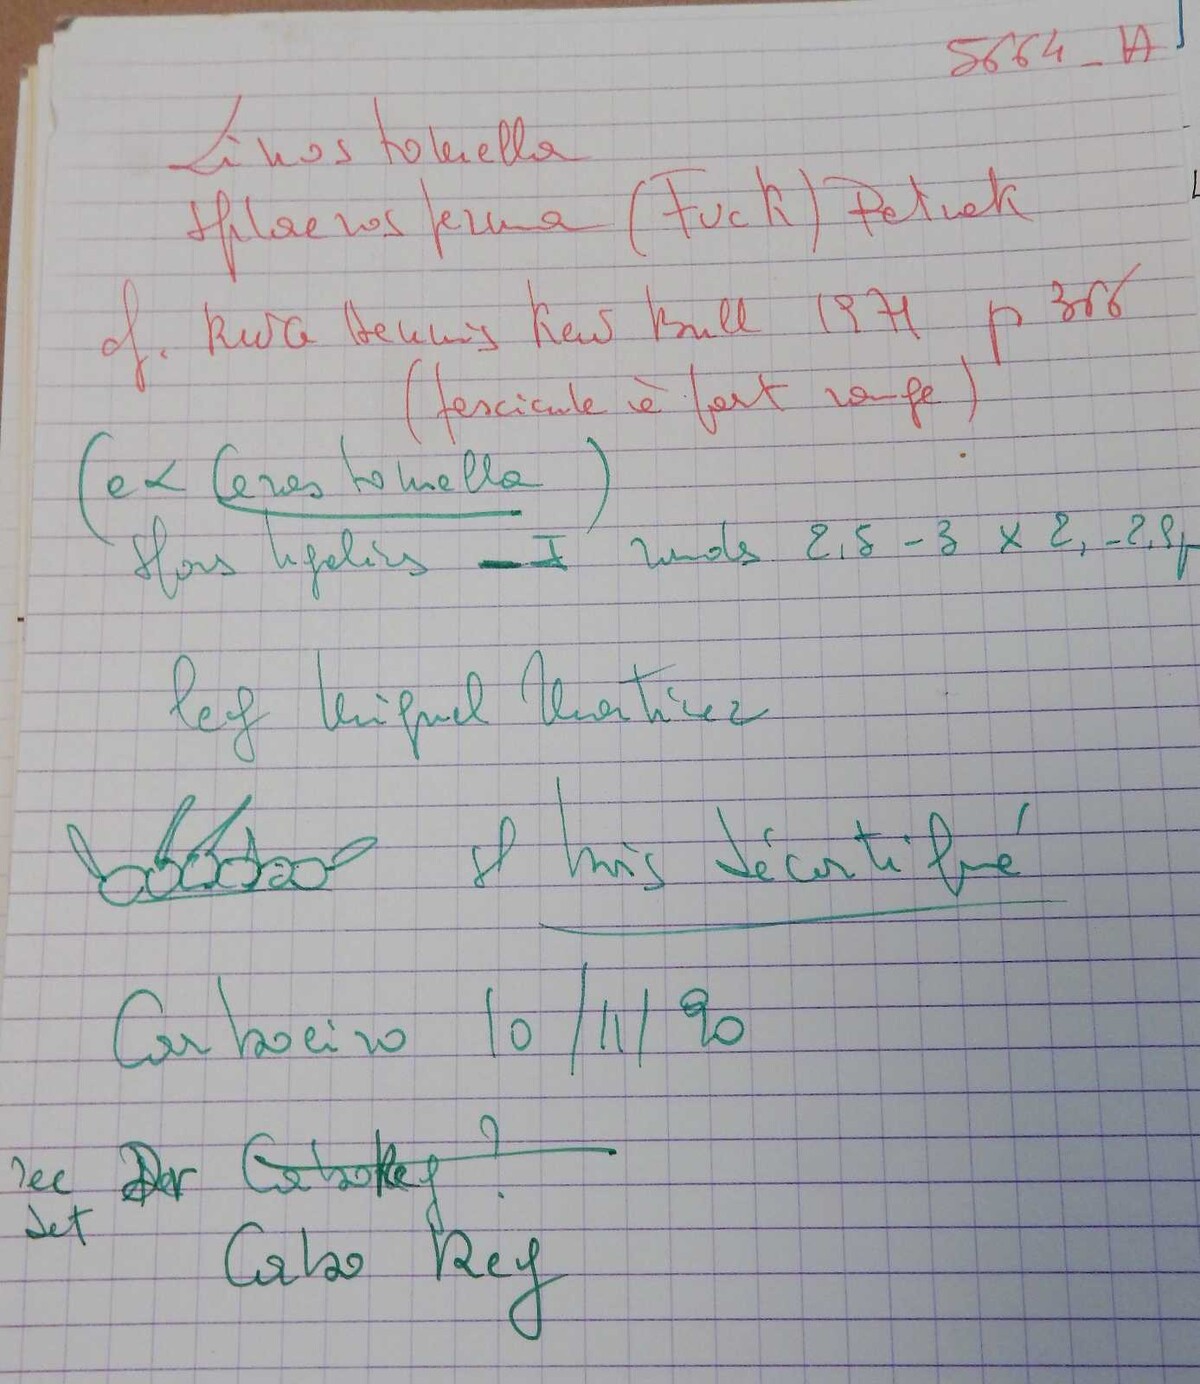 5664 - A
Linostomella
sphaerosperma (Fuck) Petrak
cf. RWG Dennis Kew Bull 1971 p 366
(fascicule à part rouge)
(ex Cerastomella)
Hors hyalins - I ronds 2,5 - 3 x 2, - 2,8 µ
leg Miguel Martinez
st bois décortiqué
Carboeiro 10/11/90
rec Der Caboreg ?
det
Cabo Rey